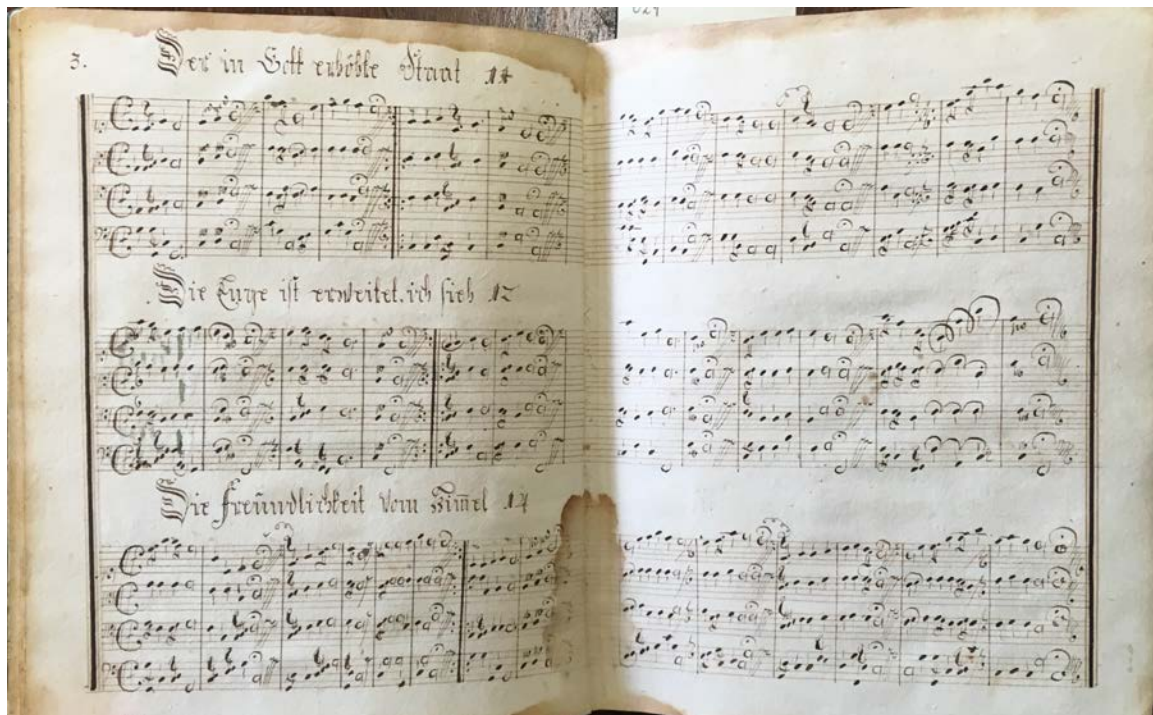 029
3. Der in Gott erhöhte Staat 14
Die Enge ist erweitet, ich sieh 12
Die Freundlichkeit vom Him̄el 14